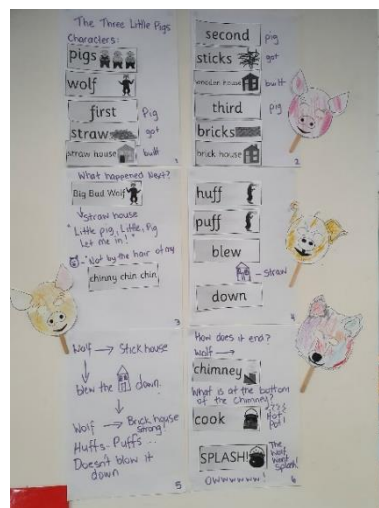 The Three Little Pigs
Characters:
pigs
wolf
first Pig
straw got
straw house built
1
second pig
sticks got
wooden house built
third pig
bricks
brick house
2
What happened Next?
Big Bad Wolf
straw house
"Little pig, Little, Pig
Let me in!"
"Not by the hair of my
chinny chin chin
3
huff
puff
blew
- straw
down
4
Wolf → Stick house
blew the down.
Wolf → Brick house
strong!
Huffs - Puffs ...
Doesn't blow it
down
5
How does it end?
Wolf →
chimney
What is at the bottom
of the chimney?
cook
Hot
Pot!
SPLASH!
The
wolf
went
splash!
Owwwwww!
6